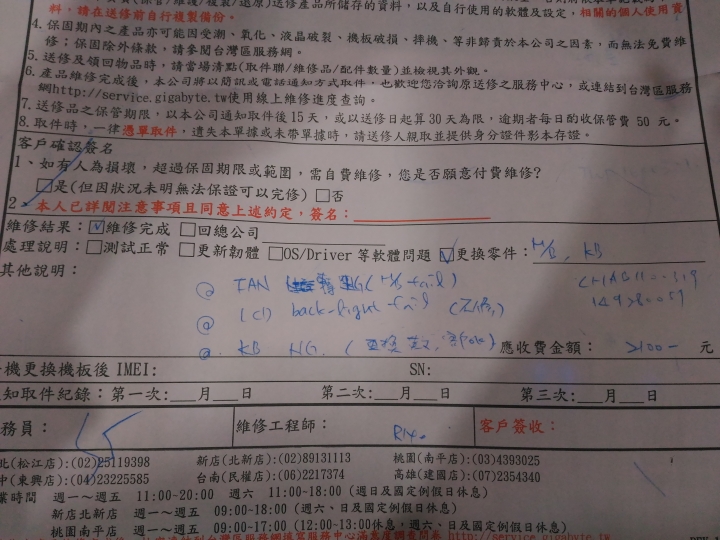 料，請在送修前自行複製備份。
4.保固期內之產品亦可能因受潮、氧化、液晶破裂、機板破損、摔機、等非歸責於本公司之因素，而無法免費維
修；保固除外條款，請參閱台灣區服務網。
5.送修及領回物品時，請當場清點(取件聯/維修品/配件數量)並檢視其外觀。
6.產品維修完成後，本公司將以簡訊或電話通知方式取件，也歡迎您洽詢原送修之服務中心，或連結到台灣區服務
網http://service.gigabyte.tw使用線上維修進度查詢。
7.送修品之保管期限，以本公司通知取件後15天，或以送修日起算30天為限，逾期者每日酌收保管費 50 元。
8.取件時，一律憑單取件，遺失本單據或未帶單據時，請送修人親取並提供身分證件影本存證。
客戶確認簽名
1、如有人為損壞，超過保固期限或範圍，需自費維修，您是否願意付費維修?
□是(但因狀況未明無法保證可以完修) □否
2、本人已詳閱注意事項且同意上述約定，簽名：
維修結果：☑維修完成 □回總公司
處理說明：□測試正常 □更新韌體 □OS/Driver等軟體問題 ☑更換零件：M/B, KB
其他說明：
FAN NG (M/B fail)
LCD back-light fail
KB NG.
應收費金額： 元
機更換機板後 IMEI: SN:
知取件紀錄：第一次:___月___日 第二次:___月___日 第三次:___月___日
務員： 維修工程師： 客戶簽收：
北(松江店):(02)25119398 新店(北新店):(02)89131113 桃園(南平店):(03)4393025
中(東興店):(04)23225585 台南(民權店):(06)2217374 高雄(建國店):(07)2354340
業時間 週一～週五 11:00~20:00 週六 11:00~18:00 (週日及國定例假日休息)
新店北新店 週一～週五 09:00~18:00 (週六、日及國定例假日休息)
桃園南平店 週一～週五 09:00~17:00 (12:00~13:00休息，週六、日及國定例假日休息)